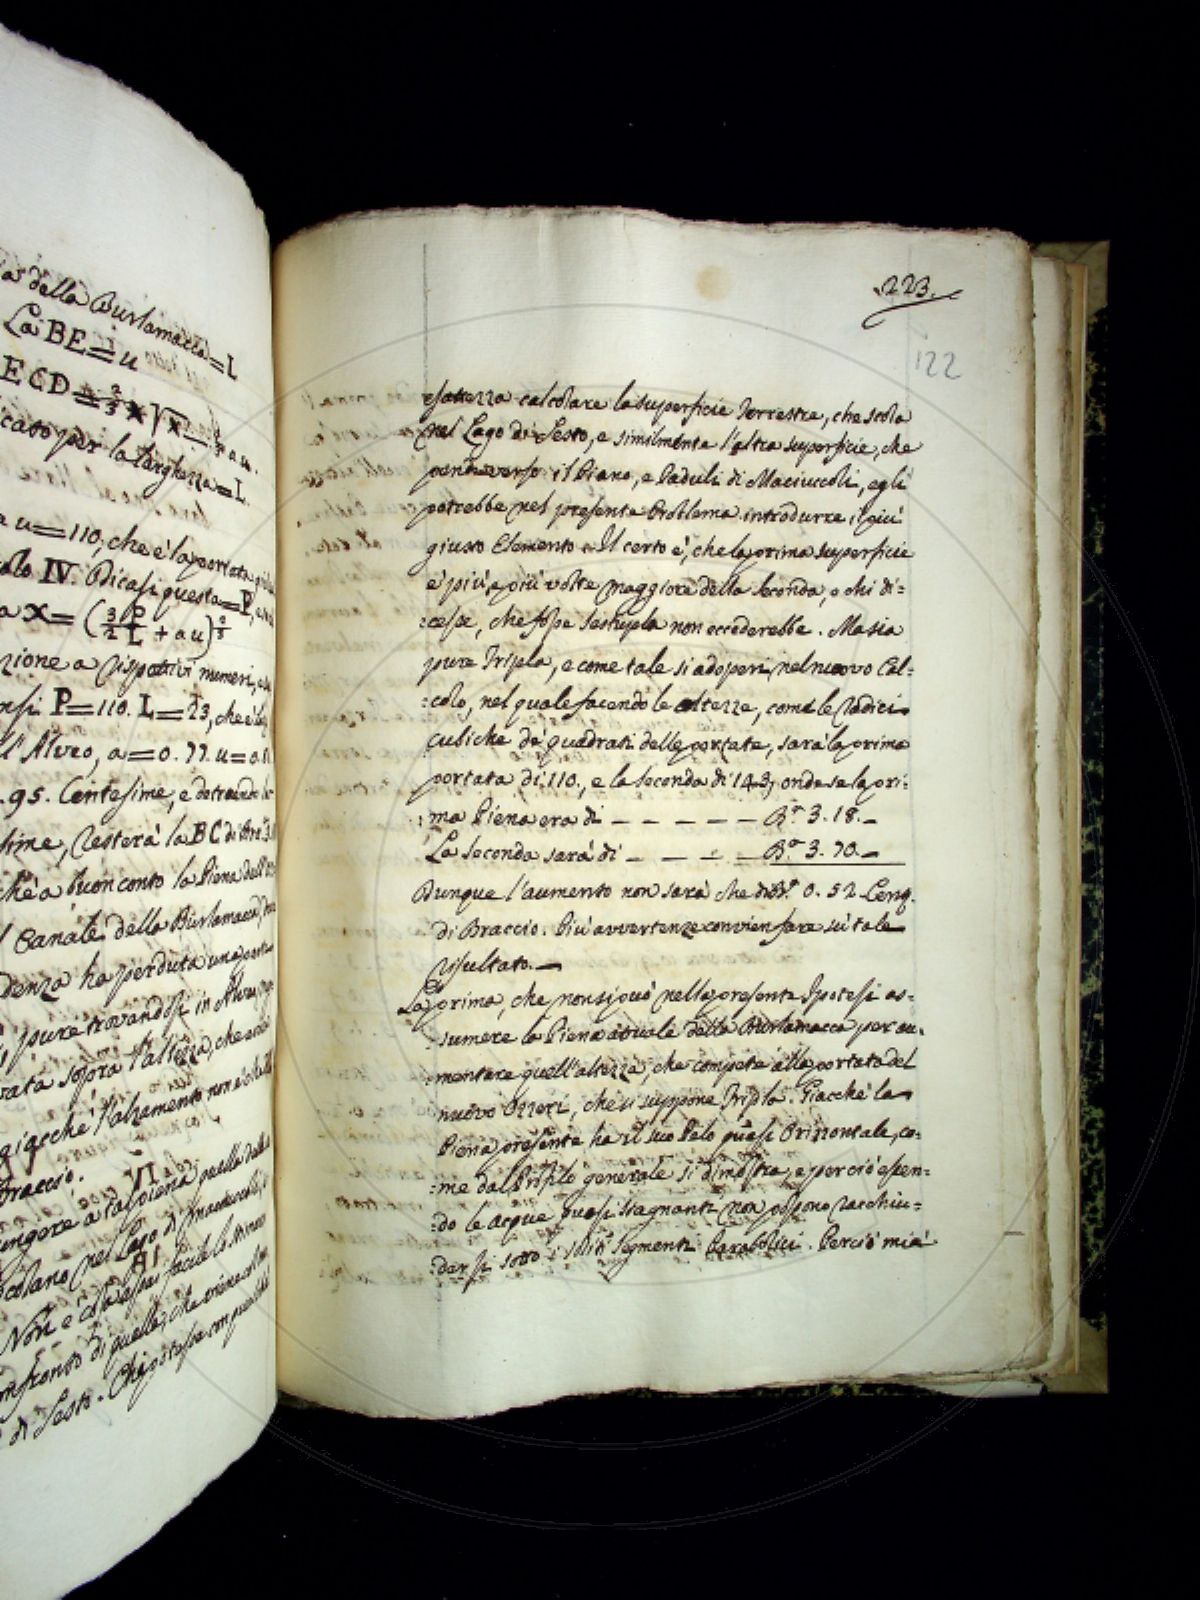 a della Burlamacca=L
La BE=u
ECD=⅔x√x-⅔au.
cato per la larghezza=L.
a u=110, che è la portata
olo IV. Dicasi questa=P,
a x=(3/2 P/L + au)⅔
zione a rispettivi numeri,
nsi P=110. L=23, che è la
l'Alveo, a=0.77. u=0.
.95. Centesime, e detraendo
sime, resterà la BC di
ché a buon conto la Piena dell'
l Canale della Burlamacca,
denza ha perduta una
pure trovandosi in Alveo
vata sopra l'altezza, che
giacchè l'alzamento non è che
Braccio.
IV
ungere a tal piena quella della
colano nel Lago di Maciuccoli,
Non è cosa assai facile lo
onfronto di quelle, che
di Sesto. Chi potesse con
223.
122
esattezza calcolare la superficie Terrestre, che scola
nel Lago di Sesto, e similmente l'altra superficie, che
pende verso il Piano, e Paduli di Maciuccoli, egli
potrebbe nel presente Problema introdurre il più
giusto Elemento. Il certo è, che la prima superficie
è più, e più volte maggiore della seconda, e chi di=
:cesse, che fosse sestupla non eccederebbe. Ma sia
pure Tripla, e come tale si adoperi nel nuovo Cal=
:colo, nel quale facendo le altezze, come le radici
cubiche de' quadrati delle portate, sarà la prima
portata di 110., e la seconda di 143; onde se la pri=
:ma Piena era di — — — — — Bᵃ. 3.18.—
La seconda sarà di — — — — Bᵃ. 3.70.—
Dunque l'aumento non sarà che di Bᵃ. 0.52 Cent.
di Braccio. Più avvertenze convien fare su tale
risultato.—
La prima, che non si può nella presente Ipotesi as=
:sumere la Piena attuale della Burlamacca per au=
:mentare quell'altezza, che compete alla portata del
nuovo Ozzeri, che si suppone Tripla. Giacchè la
Piena presente ha il suo Pelo quasi Orizzontale, co=
:me dal Profilo generale si dimostra, e perciò essen=
:do le acque quasi stagnanti non possono racchiu=
:dersi sotto i soliti segmenti Parabolici. Perciò mia